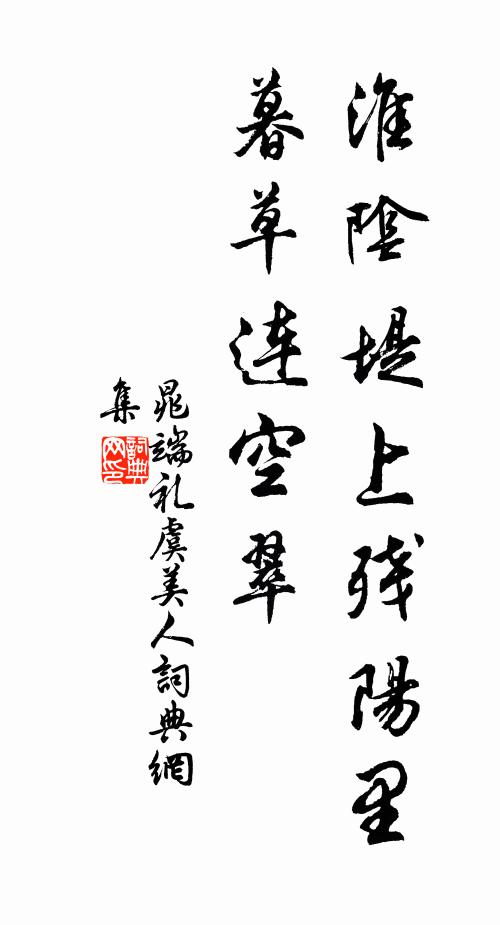 淮陰堤上残陽里
暮草连空翠
晁端礼虞美人詞典網
集
詞典
网印